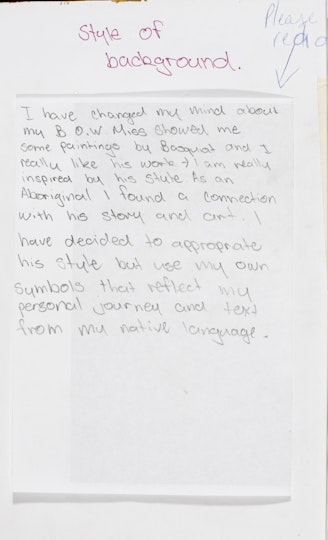 Style of
background.
Please
read
I have changed my mind about
my B.O.W. Miss showed me
some paintings by Basquat and I
really like his work & I am really
inspired by his style. As an
Aboriginal I found a connection
with his story and art. I
have decided to appropriate
his style but use my own
symbols that reflect my
personal journey and text
from my native language.